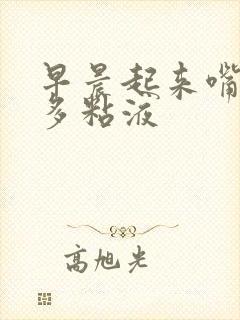 早晨起来嘴
多粘液
高旭光